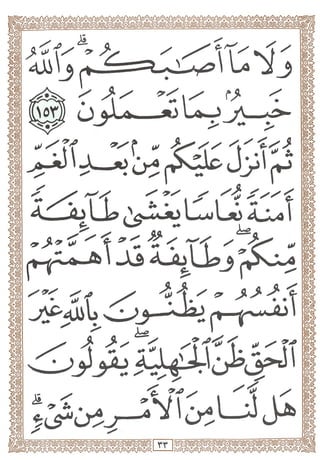 وَلَا مَآ أَصَـٰبَكُمْ ۗ وَٱللَّهُ
خَبِيرٌۢ بِمَا تَعْمَلُونَ ١٥٣
ثُمَّ أَنزَلَ عَلَيْكُم مِّنۢ بَعْدِ ٱلْغَمِّ
أَمَنَةً نُّعَاسًا يَغْشَىٰ طَآئِفَةً
مِّنكُمْ ۖ وَطَآئِفَةٌ قَدْ أَهَمَّتْهُمْ
أَنفُسُهُمْ يَظُنُّونَ بِٱللَّهِ غَيْرَ
ٱلْحَقِّ ظَنَّ ٱلْجَـٰهِلِيَّةِ ۖ يَقُولُونَ
هَل لَّنَا مِنَ ٱلْأَمْرِ مِن شَىْءٍ ۗ
٣٣